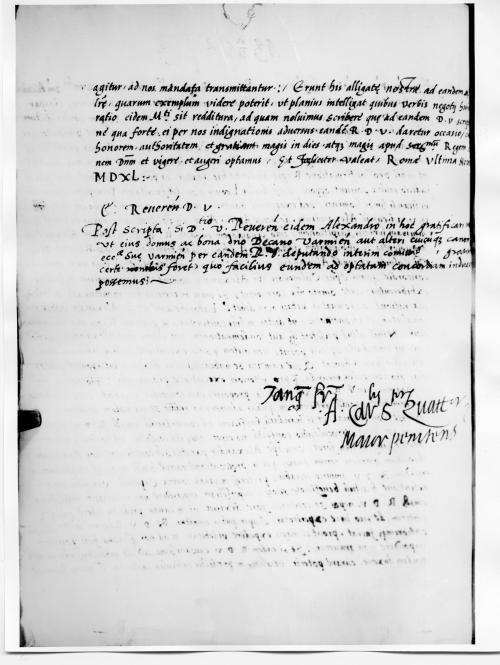 agitur, ad nos mandata transmittantur :/ Erunt his alligatę nostrę ad eandem
lrę, quarum exemplum videre poterit, ut planius intelligat quibus verbis negotij
ratio eidem M.ti sit redditura, ad quam noluimus scribere quę ad eandem D. v
né qua forte ei per nos indignationis adversus eandē R. D. V. daretur occasio,
honorem, authoritatem, et gratiam magis in dies atqꝫ magis apud Regem
nem Dnm et vigere et augeri optamus / Et foeliciter valeat Romæ Vltima
MDXL:-
E. Reveren D. V
Post Scripta Si D.tio V. Reveren eidem Alexandro in hoc
ut eius domus ac bona dno Decano Varmien aut alteri cuicꝫ
eccæ Suę varmien per eandem R. V. deputando interim
certe foret, quo facilius eundem ad optatam concordiam
possemus:/
Tanqꝫ fr̄
A Car.lis Sti Quatt
Maior penitens